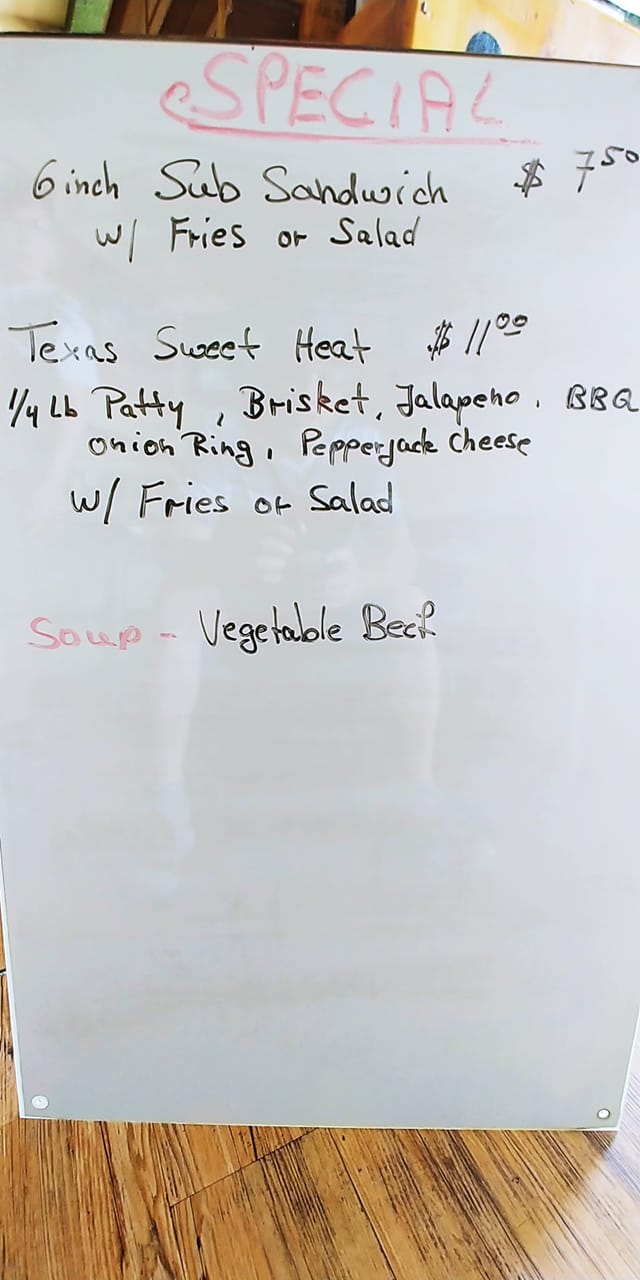 SPECIAL
6 inch Sub Sandwich $ 7.50
w/ Fries or Salad
Texas Sweet Heat $ 11.00
1/4 Lb Patty, Brisket, Jalapeno, BBQ
onion Ring, Pepperjack Cheese
w/ Fries or Salad
Soup - Vegetable Beef